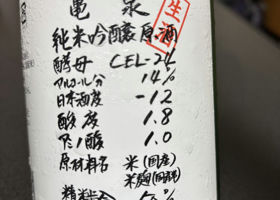 亀泉
生酒
純米吟醸原酒
酵母 CEL-24
アルコール分 14%
日本酒度 -12
酸度 1.8
アミノ酸 1.0
原材料名 米(国産)
米麹(国産米)
精米歩合